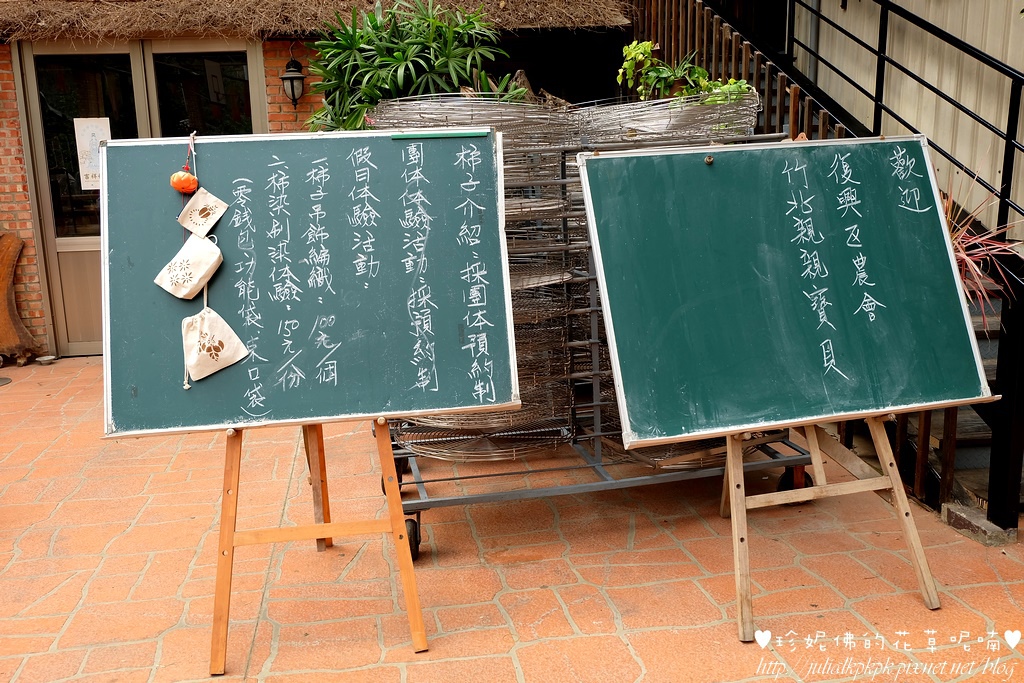 柿子介紹：採團体預約制
團体体驗活動：採預約制
假日体驗活動：
一.柿子吊飾編織：100元/個
二.柿染刷染体驗：150元/份
(零錢包.功能袋.束口袋)
歡迎
復興区農會
竹北親親寶貝
♥珍妮佛的花草呢喃♥
http://julialkpkpk.pixnet.net/blog